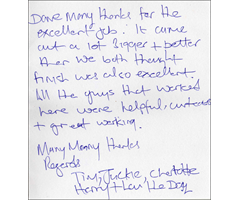 Dave Many thanks for the
excellent job. It came
out a lot bigger + better
than we both thought
finish was also excellent.
All the guys that worked
here were helpful, courteous
+ great working.
Many Many thanks
Regards
Tim, Jackie, Charlotte
Harry + Leu the Dog